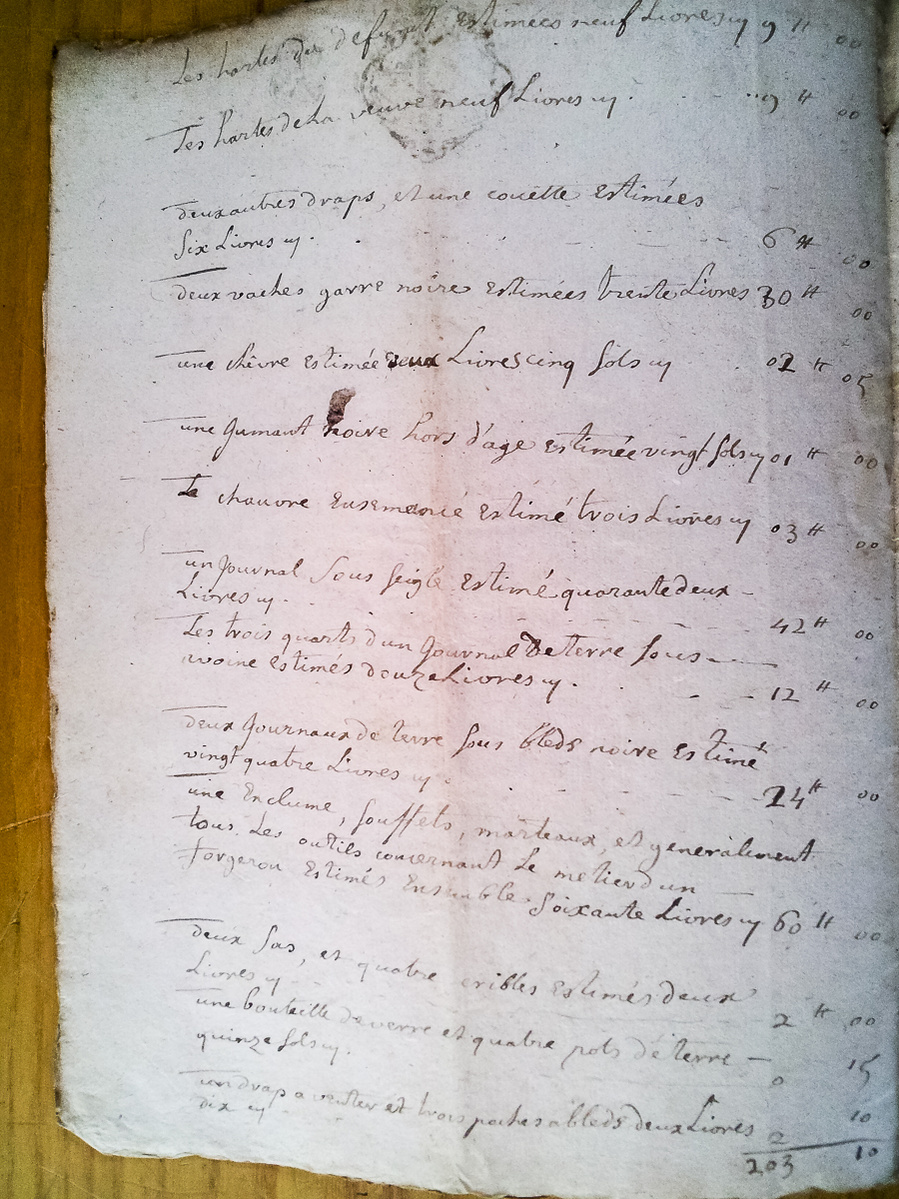 Les hardes du defunt Estimées neuf Livres cy 9 ₶ 00
Les hardes de La veuve neuf Livres cy . 9 ₶ 00
deux autres draps, et une couëtte Estimées
six Livres cy . 6 ₶ 00
deux vaches garre noire Estimées trente Livres 30 ₶ 00
une chêvre Estimée deux Livres cinq sols cy 02 ₶ 05
une Jumant noire hors d'age Estimée vingt sols cy 01 ₶ 00
Le chanvre Ensemancé Estimé trois Livres cy 03 ₶ 00
un Journal sous seigle Estimé quarante deux -
Livres cy . 42 ₶ 00
Les trois quarts d'un Journal De terre sous
avoine Estimés douze Livres cy . 12 ₶ 00
deux Journaux de terre sous bleds noire Estimé
vingt quatre Livres cy . 24 ₶ 00
une Enclume, soufflets, marteaux, et generalement
tous Les outies concernant Le metier d'un
forgeron Estimés Ensembles soixante Livres cy 60 ₶ 00
deux sas, et quatre cribles Estimés deux
Livres cy 2 ₶ 00
une bouteille de verre et quatre pots de terre -
quinze sols cy . 0 15
un drap a venter et trois poches a bleds deux Livres
dix cy 2 10
203 10